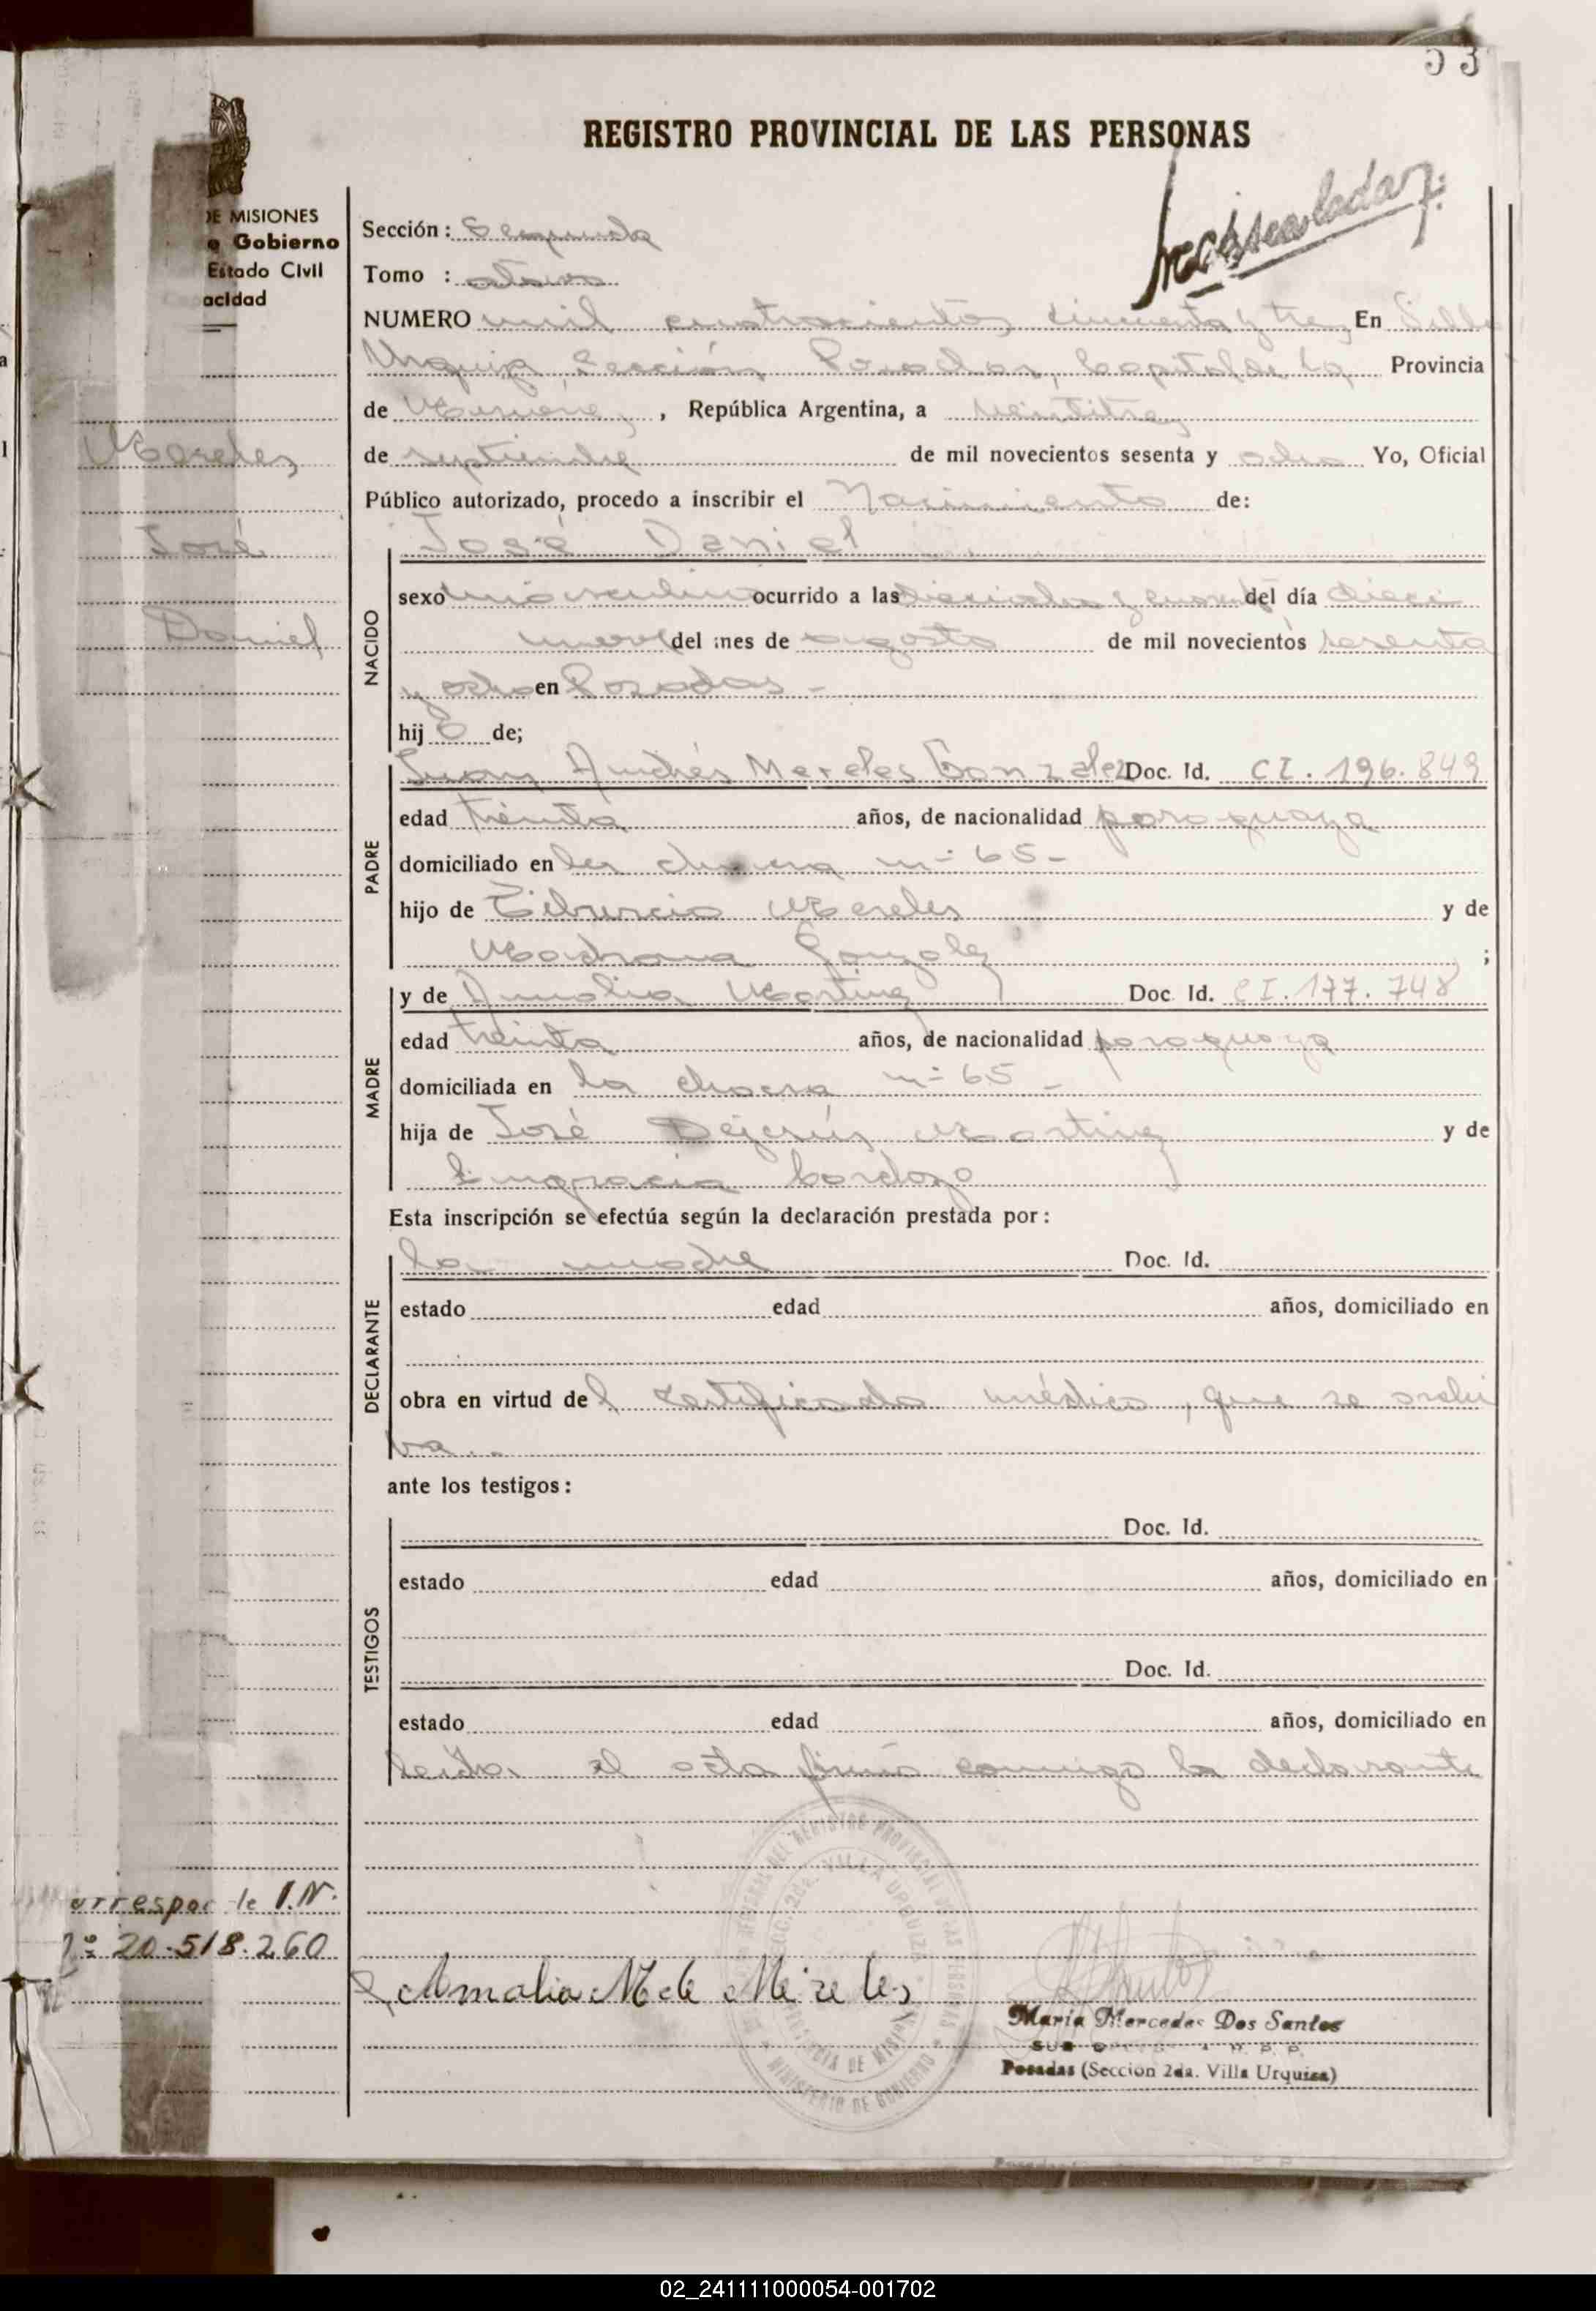 53
REGISTRO PROVINCIAL DE LAS PERSONAS
DE MISIONES
Gobierno
Estado Civil
acidad
Sección: Segunda
Tomo : octavo
NUMERO mil cuatrocientos cincuenta y tres En Villa
Urquiza, Sección Posadas, Capital de la Provincia
de Misiones, República Argentina, a veintitres
de septiembre de mil novecientos sesenta y ocho Yo, Oficial
Público autorizado, procedo a inscribir el Nacimiento de:
Mereles
José
Daniel
José Daniel
NACIDO
sexo masculino ocurrido a las del día dieci
nueve del mes de agosto de mil novecientos sesenta
y ocho en Posadas -
hijo de;
PADRE
Juan Andrés Mereles Gonzalez Doc. Id. CI. 196.849
edad treinta años, de nacionalidad paraguaya
domiciliado en la chacra nº 65 -
hijo de Tiburcio Mereles y de
Gonzalez ;
MADRE
y de Amalia Martinez Doc. Id. CI. 177.748
edad treinta años, de nacionalidad paraguaya
domiciliada en la chacra nº 65 -
hija de José Martinez y de
Engracia Cardozo
Esta inscripción se efectúa según la declaración prestada por:
DECLARANTE
la madre Doc. Id.
estado edad años, domiciliado en
obra en virtud del certificado médico, que se archi
va. -
ante los testigos:
TESTIGOS
Doc. Id.
estado edad años, domiciliado en
Doc. Id.
estado edad años, domiciliado en
Leida el acta firmó conmigo la declarante
VILLA URQUIZA
MINISTERIO DE GOBIERNO
I.N.
Nº 20.518.260
Amalia M de Mereles
María Mercedes Dos Santos
Posadas (Seccion 2da. Villa Urquiza)
02_241111000054-001702